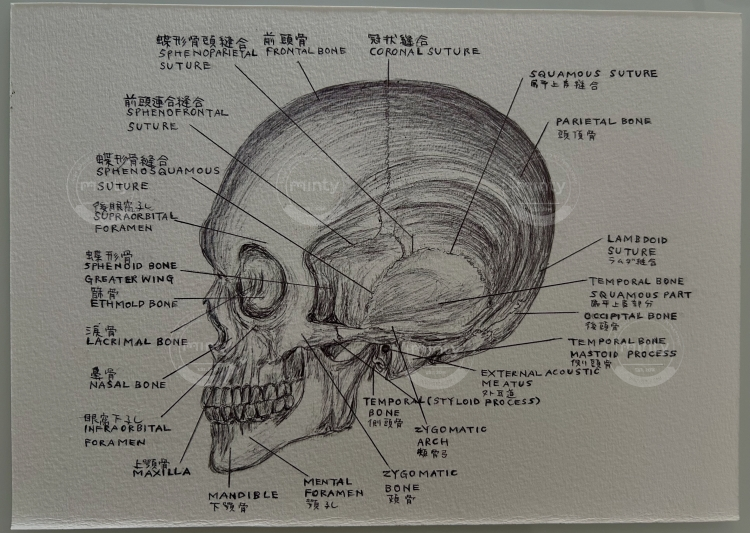 蝶形骨頭縫合
SPHENOPARIETAL
SUTURE
前頭骨
FRONTAL BONE
冠状縫合
CORONAL SUTURE
SQUAMOUS SUTURE
縫合
前頭連合縫合
SPHENOFRONTAL
SUTURE
PARIETAL BONE
頭頂骨
蝶形骨縫合
SPHENOSQUAMOUS
SUTURE
minty
minty
minty
SUPRAORBITAL
FORAMEN
LAMBDOID
SUTURE
ラムダ縫合
蝶形骨
SPHENOID BONE
GREATER WING
篩骨
ETHMOLD BONE
TEMPORAL BONE
SQUAMOUS PART
部分
OCCIPITAL BONE
後頭骨
涙骨
LACRIMAL BONE
TEMPORAL BONE
MASTOID PROCESS
側頭骨
鼻骨
NASAL BONE
EXTERNAL ACOUSTIC
MEATUS
外耳道
TEMPORAL (STYLOID PROCESS)
BONE
側頭骨
眼窩下孔
INFRAORBITAL
FORAMEN
ZYGOMATIC
ARCH
頬骨弓
上顎骨
MAXILLA
ZYGOMATIC
BONE
頬骨
MANDIBLE
下顎骨
MENTAL
FORAMEN
顎孔